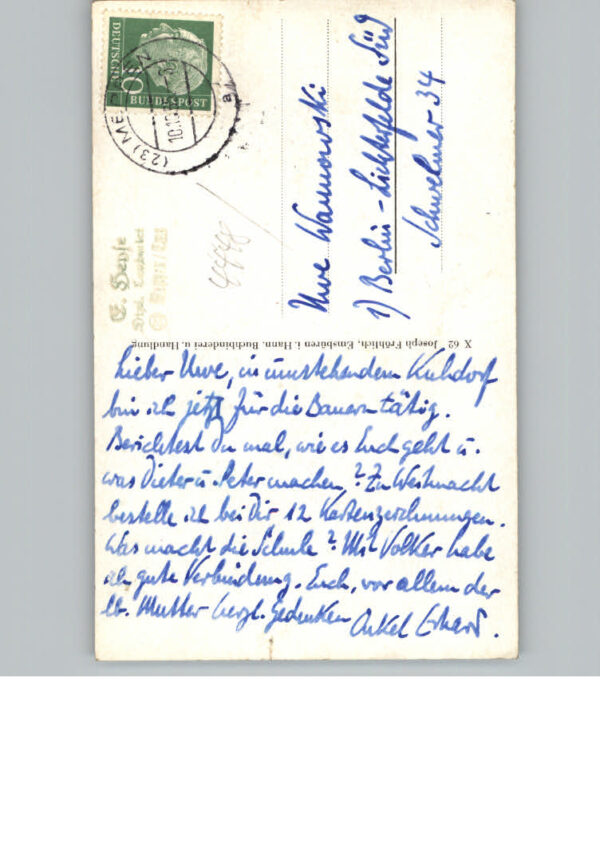 DEUTSCHE
BUNDESPOST
10
(23) ME
10.10.
a
E. Hense
Dipl. Landwirt
4448
Uwe Wannowski
1) Berlin - Lichterfelde Süd
Schwelmer 34
X 62 Joseph Fröhlich, Emsbüren i. Hann. Buchbinderei u. Handlung
Lieber Uwe, in umstehendem Kuhdorf
bin ich jetzt für die Bauern tätig.
Berichtest Du mal, wie es Euch geht u.
was Dieter u. Peter machen? Zu Weihnacht
bestelle ich bei Dir 12 Kartenzeichnungen.
Was macht die Schule? Mit Volker habe
ich gute Verbindung. Euch, vor allem der
lb. Mutter herzl. Gedenken Onkel Erhard.